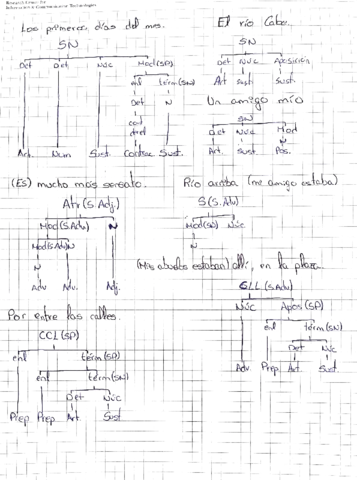 Los primeros días del mes.
SN
Det Det Núc Mod(SP)
enl térm(SN)
Det N
cont
dret
Art. Num Sust. Contrac Sust.
El río Cabe.
SN
Det Núc Aposición
Art Sust Sust.
Un amigo mío
SN
Det Núc Mod
N
Art. Sust. Pos.
(Es) mucho más sensato.
Atr(S.Adj)
Mod(SAdv) N
Mod(SAdv) N
N
Adv Adv. Adj.
Río arriba (me amigo estaba)
S(S.Adv)
Mod(SN) Núc
N
(Mis abuelos estaban) allí, en la plaza.
CLL(SAdv)
Núc Apos(SP)
enl térm(SN)
Det Núc
Adv Prep Art. Sust.
Por entre las calles.
CCL(SP)
enl térm(SP)
enl térm(SN)
Det Núc
Prep Prep Art Sust